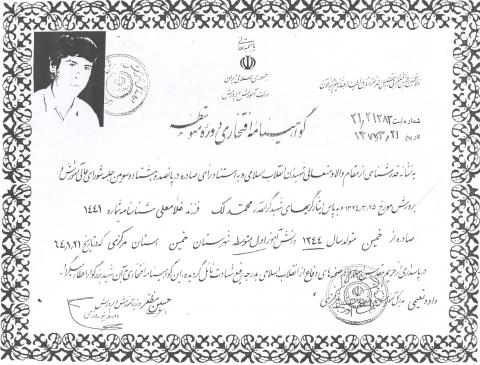 باسمه تعالی
جمهوری اسلامی ایران
وزارت آموزش و پرورش
شماره ثبت ۲۱/۲۱۲۸۲
تاریخ ۱۳۷۶/۳/۲۱
گواهینامه افتخاری دوره متوسطه
به نشانه قدرشناسی از مقام والا و متعالی شهیدان انقلاب اسلامی و به استناد رأی صادره در پانصد و هشتاد و سومین جلسه شورای عالی آموزش و
پرورش مورخ ۱۳۷۴/۳/۲۵ و به پاس ایثارگریهای شهید گرانقدر محمد لک فرزند غلامعلی شناسنامه شماره ۱۴۴۱
صادره از خمین متولد سال ۱۳۴۴ دانش آموز اول متوسطه شهرستان خمین استان مرکزی که در تاریخ ۶۴/۱/۲۱
در پاسداری از حریم مقدس اسلام در صحنه های دفاع از انقلاب اسلامی به درجه رفیع شهادت نائل گردیده، این گواهینامه افتخاری به آن شهید بزرگوار اعطا میگردد
داود نعیمی
حسین مظفر
وزیر آموزش و پرورش